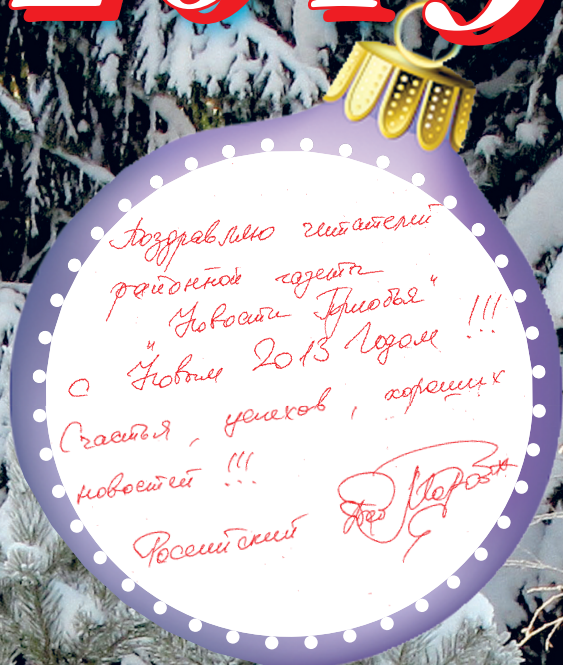 2013
Поздравляю читателей
районной газеты
"Новости Приобья"
с Новым 2013 Годом !!!
Счастья, успехов, хороших
новостей !!!
Российский Дед Мороз